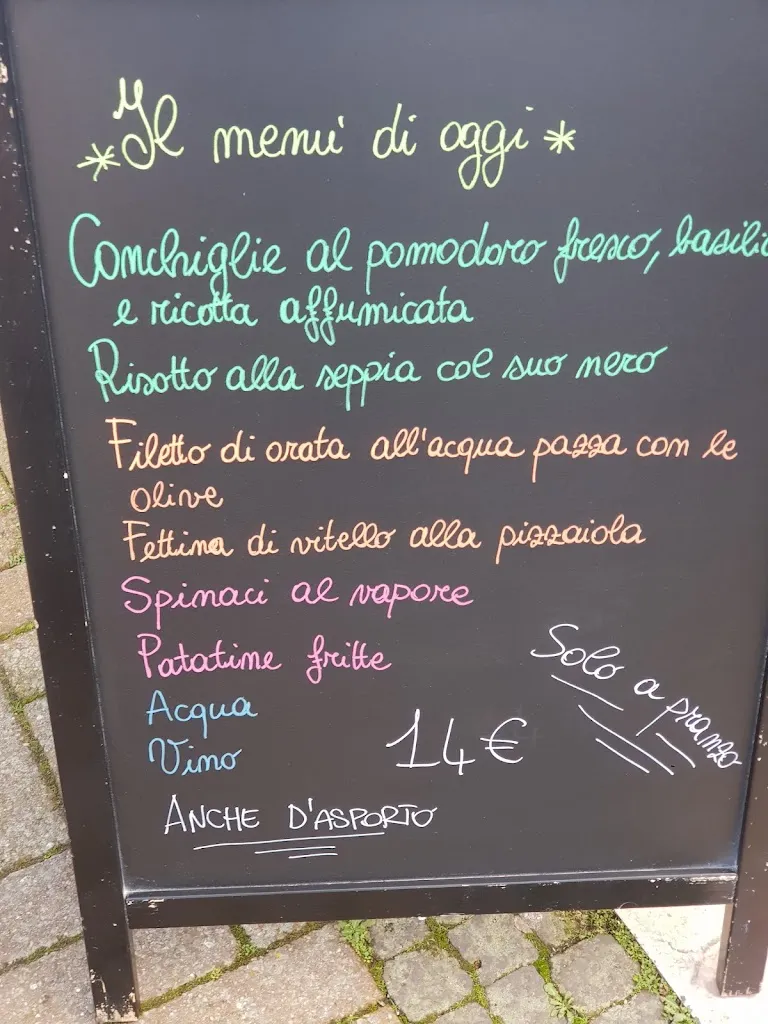 *Il menu' di oggi*
Conchiglie al pomodoro fresco, basilic
e ricotta affumicata
Risotto alla seppia col suo nero
Filetto di orata all'acqua pazza con le
olive
Fettina di vitello alla pizzaiola
Spinaci al vapore
Patatine fritte
Acqua
Vino
14€
Solo a pranzo
ANCHE D'ASPORTO